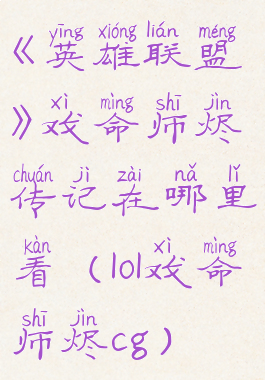 yīng xióng lián méng
《英雄联盟
xì mìng shī jìn
》戏命师烬
chuán jì zài nǎ lǐ
传记在哪里
kàn xì mìng
看（lol戏命
shī jìn
师烬cg）